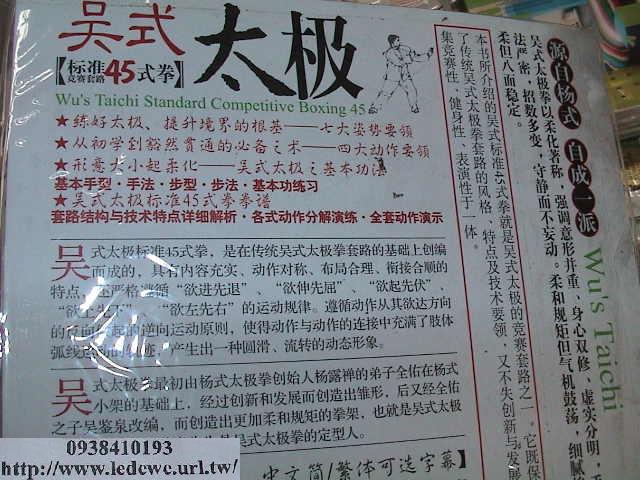 吴式太极
【标准竞赛套路45式拳】
Wu's Taichi Standard Competitive Boxing 45
★练好太极、提升境界的根基——七大姿势要领
★从初学到豁然贯通的必备之术——四大动作要领
★形意大小起柔化——吴式太极之基本功法
基本手型·手法·步型·步法·基本功练习
★吴式太极标准45式拳拳谱
套路结构与技术特点详细解析·各式动作分解演练·全套动作演示
吴式太极标准45式拳，是在传统吴式太极拳套路的基础上创编
而成的，具有内容充实、动作对称、布局合理、衔接合顺的
特点，还严格遵循“欲进先退”、“欲伸先屈”、“欲起先伏”、
“欲左先右”的运动规律。遵循动作从其欲达方向
的逆向运动原则，使得动作与动作的连接中充满了肢体
弧线，产生出一种圆滑、流转的动态形象。
吴式太极拳最初由杨式太极拳创始人杨露禅的弟子全佑在杨式
小架的基础上，经过创新和发展而创造出雏形，后又经全佑
之子吴鉴泉改编，而创造出更加柔和规矩的拳架，也就是吴式太
是吴式太极拳的定型人。
中文简/繁体可选字幕】
源自杨式 自成一派
Wu's Taichi
吴式太极拳以柔化著称，强调意形并重、身心双修，虚实分明，
法严密，招数多变，守静而不妄动。柔和规矩但气机鼓荡，细腻
柔但八面稳定。
本书所介绍的吴式标准45式拳就是吴式太极的竞赛套路之一。它既保
了传统吴式太极拳套路的风格、特点及技术要领，又不失创新与发展
集竞赛性、健身性、表演性于一体。
0938410193
http://www.ledcwc.url.tw/